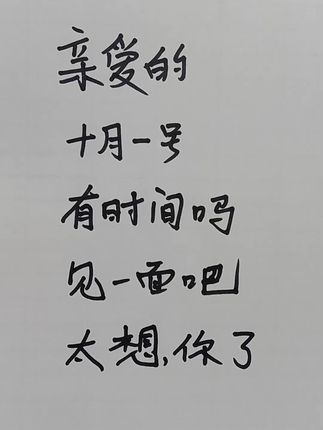 亲爱的
十月一号
有时间吗
见一面吧
太想,你了